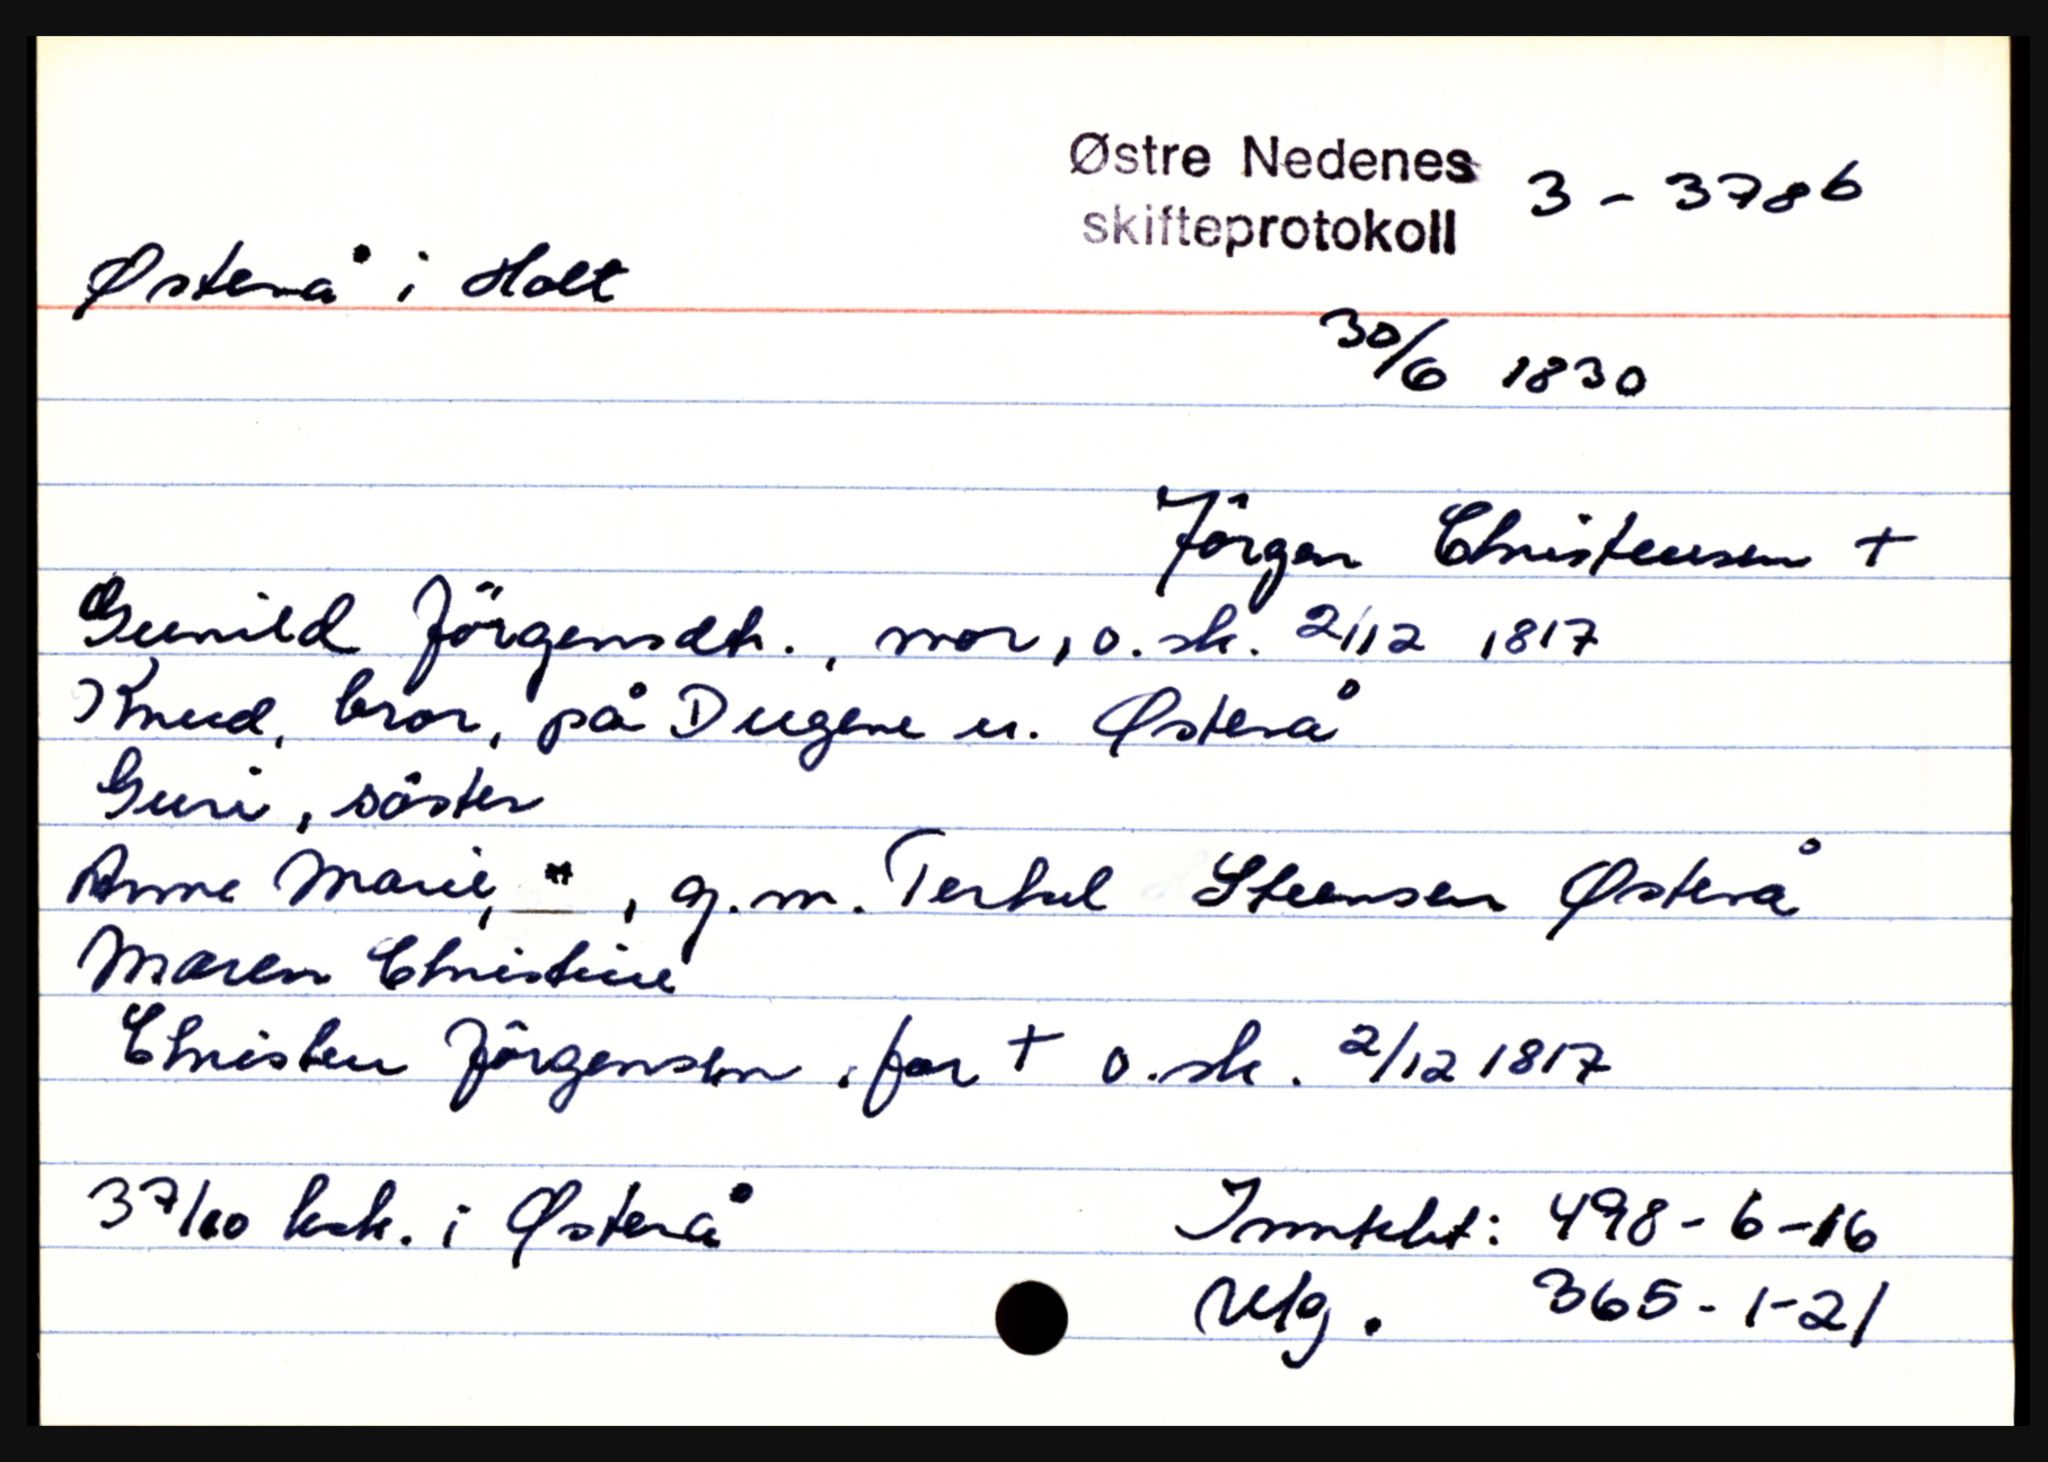 Østre Nedenes
skifteprotokoll 3 - 378b
Østerå i Holt
30/6 1830
Jörgen Christensen +
Gunild Jörgensdtr., mor, o. sk. 2/12 1817
Knud, bror, på Dugene u. Østerå
Guri, söster
Anne Marie, ", g.m. Terkel Steensen Østerå
Maren Christine
Christen Jörgensen, far + o. sk. 2/12 1817
37/10 ksk. i Østerå
Inntekt: 498 - 6 - 16
Utg. 365 - 1 - 21